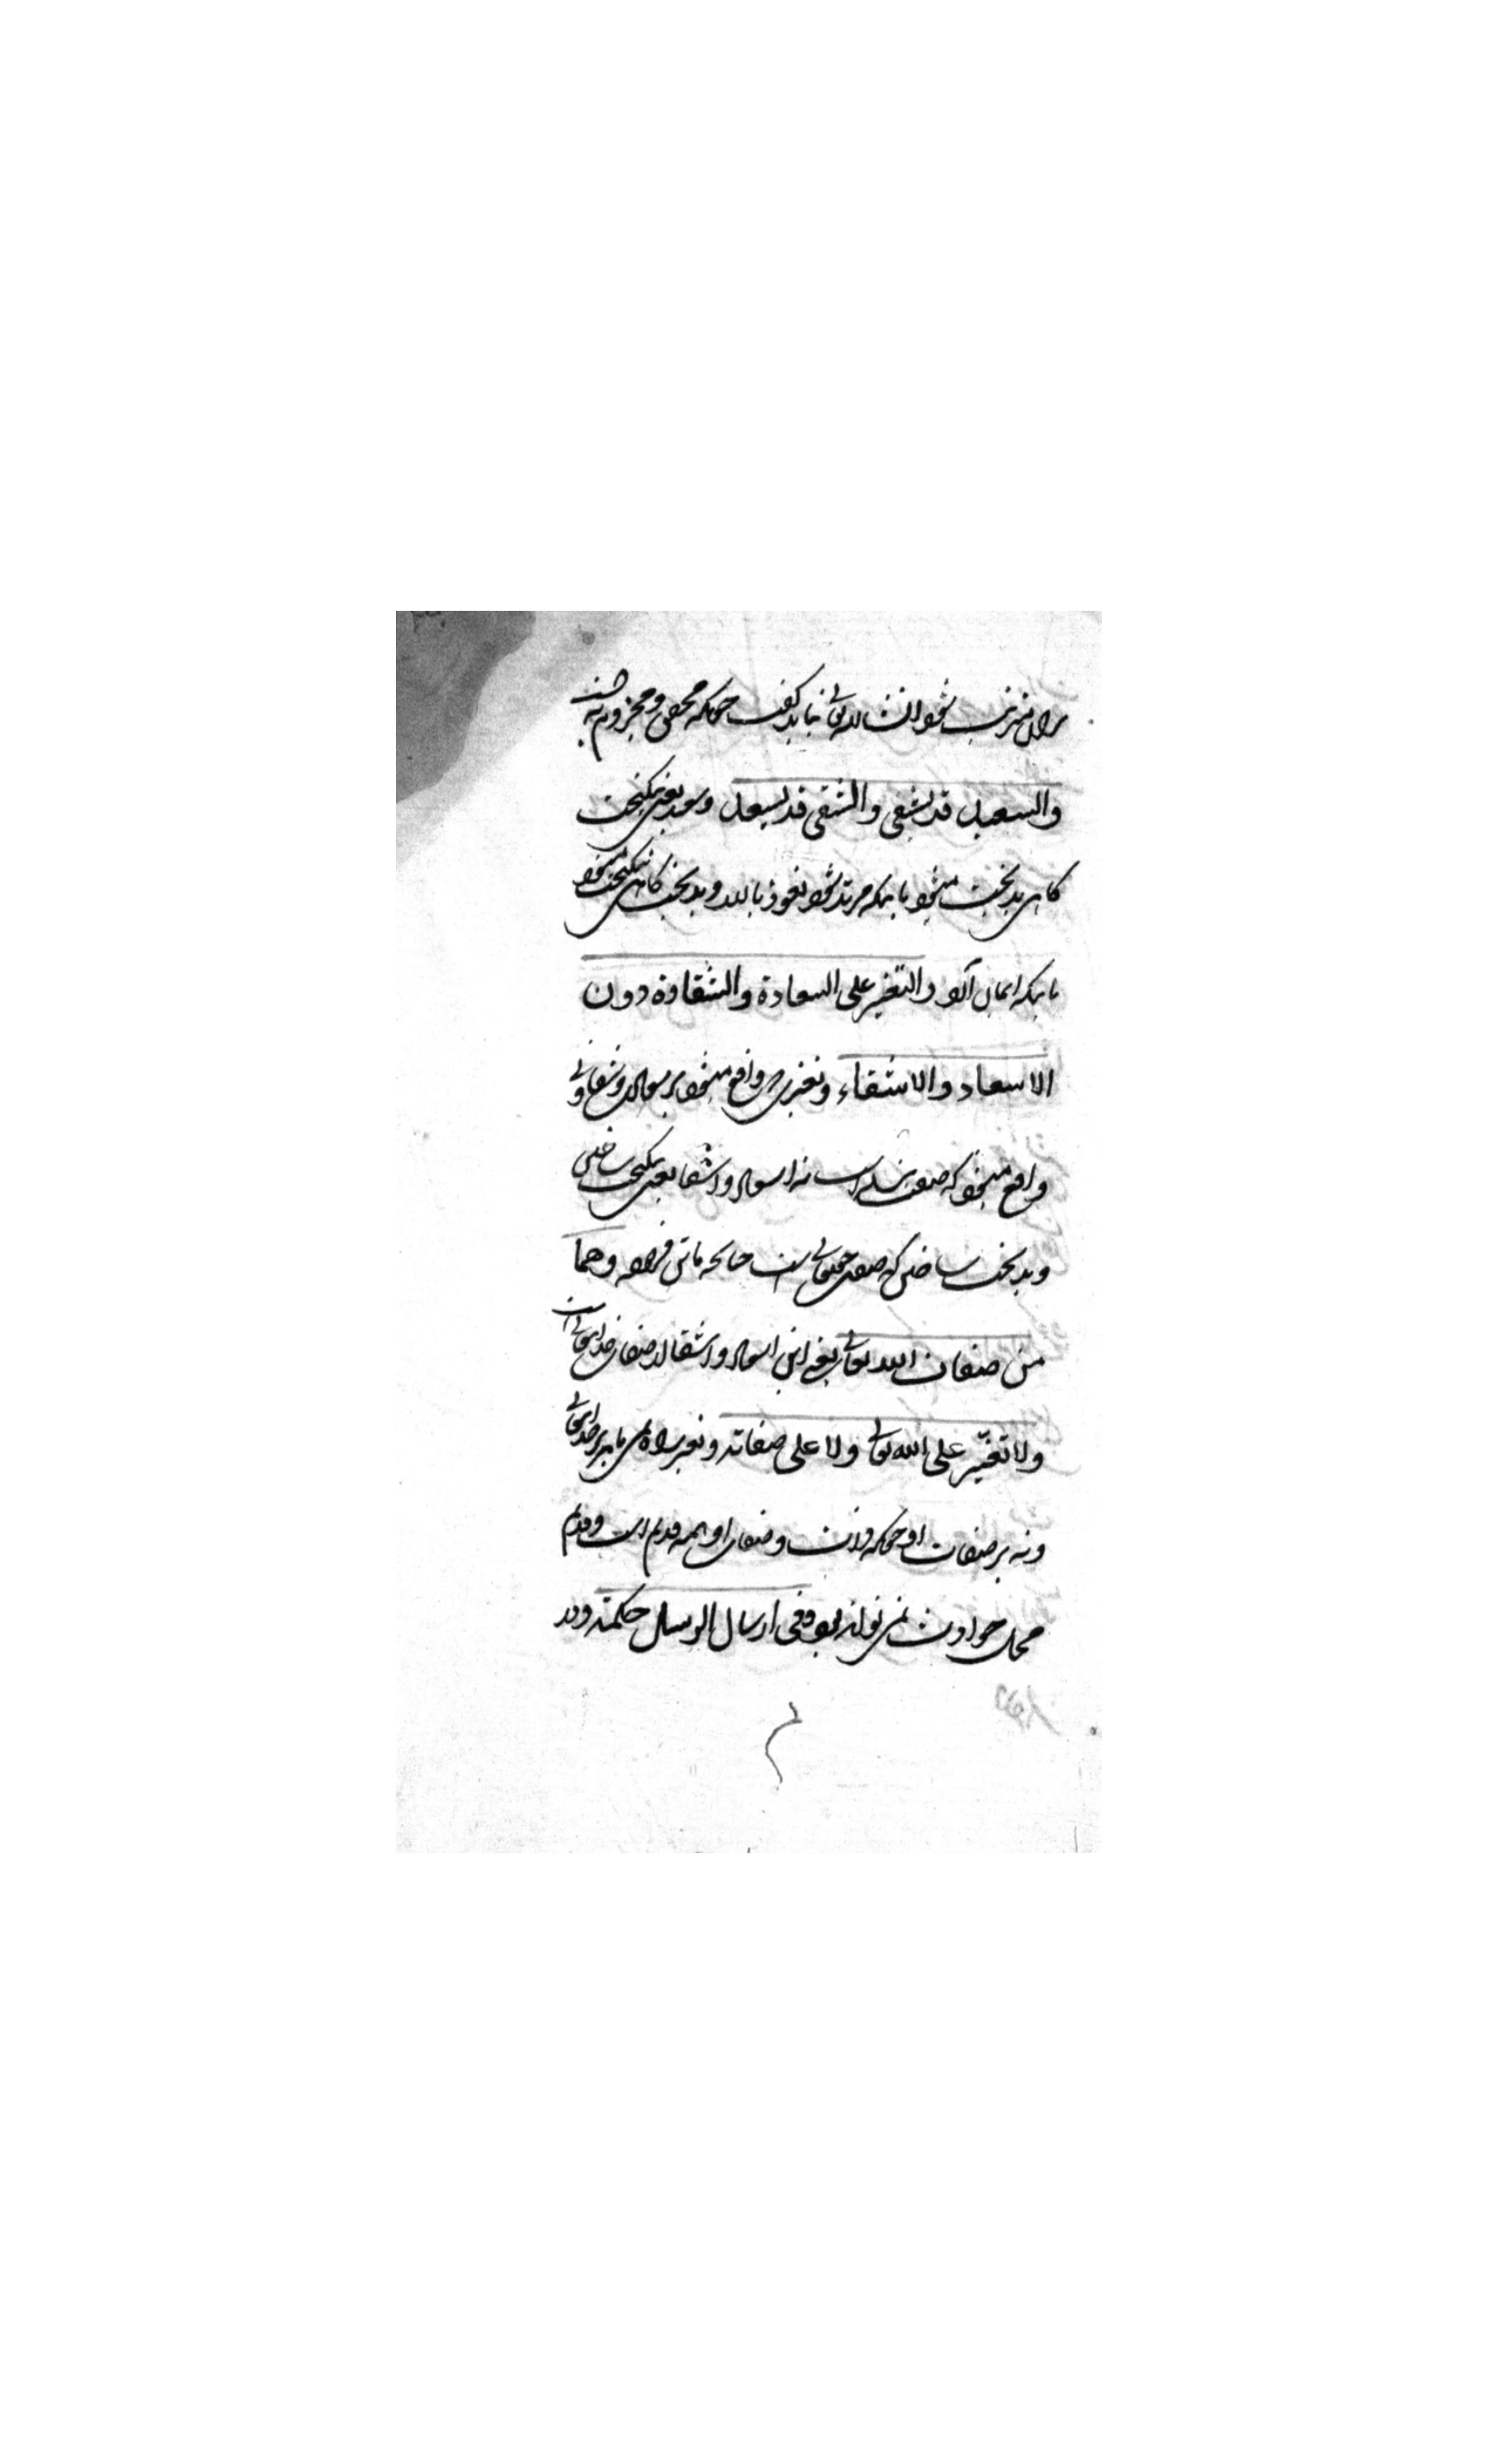 نباید گفت جرا که محض و مجزوم نه
والسعید قد یشقی والشقی قد یسعد و سعید یعنی نیکبخت
کاهی بدبخت میشود بآنکه مرتد شود نعوذ بالله و بدبخت کاهی نیکبخت میشود
بآنکه ایمان آرد والتغیر علی السعادة والشقاوة دون
الاسعاد والاشقاء و تغیری که واقع میشود بر سعادت و شقاوت
واقع میشود که صفت بنده است نه اسعاد و اشقا یعنی نیکبخت ساختن
و بدبخت ساختن که صفت حقتعالی است چنانچه ماتن فرموده وهما
من صفات الله تعالی یعنی این اسعاد و اشقا از صفات خدایتعالی است
ولا تغیر علی الله تعالی ولا علی صفاته و تغیر راه نمی یابد بر خدایتعالی
و نه بر صفات او جرا که ذات و صفات او همه قدیم است و قدیم
محل حوادث نمی تواند بود وفی ارسال الرسل حکمة و در